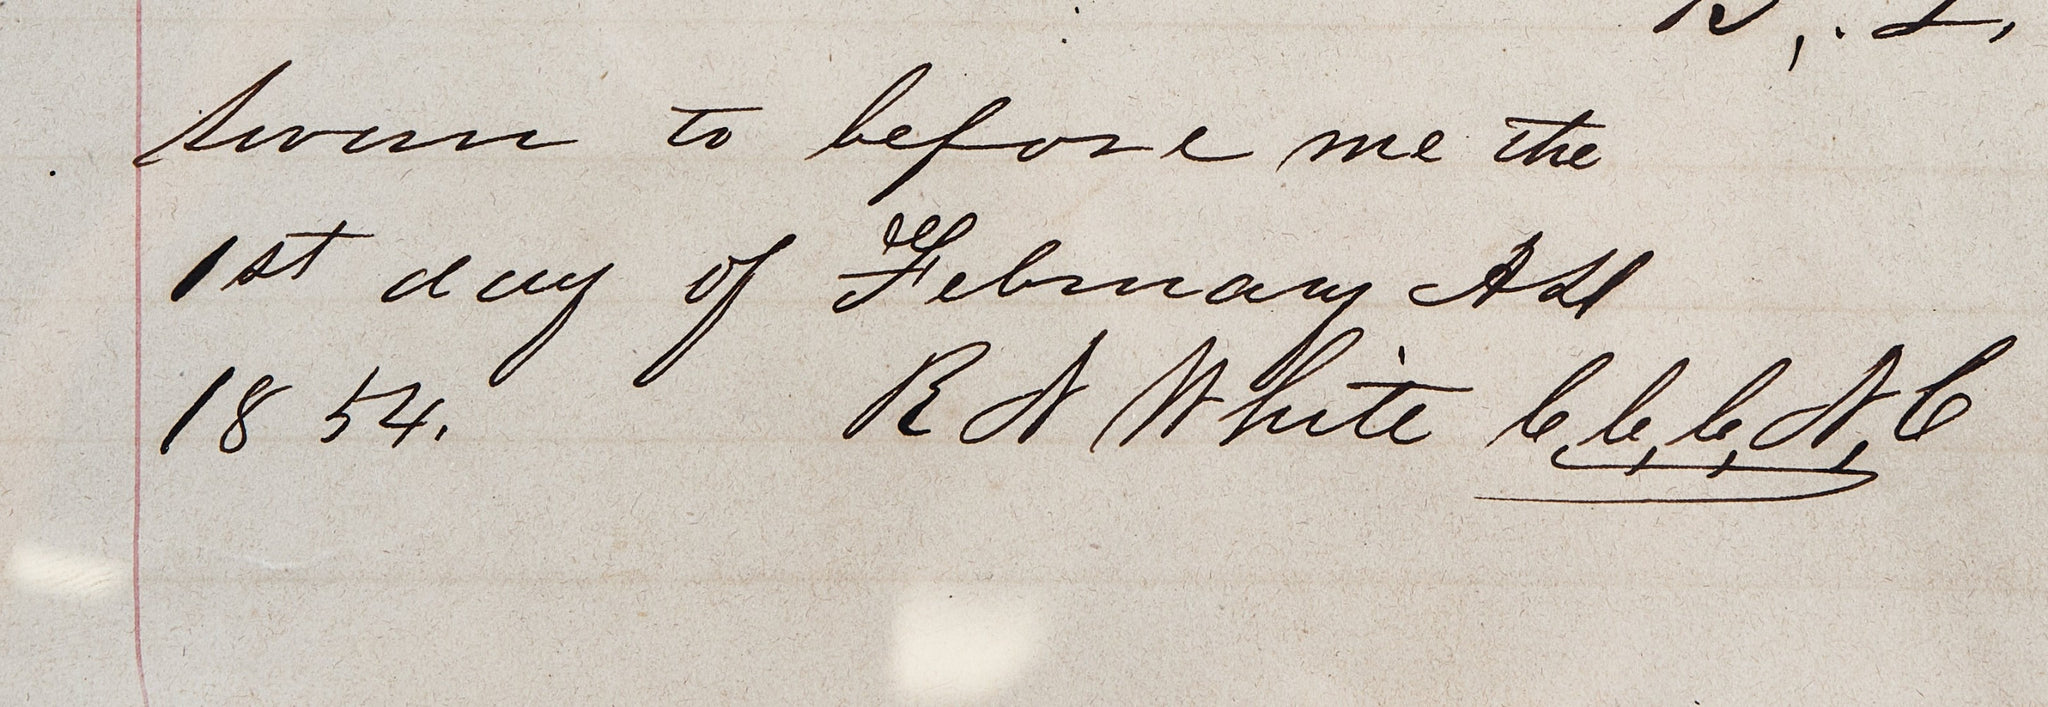 Sworn to before me the
1st day of February AD
1854. R N White C,C,C,N,C